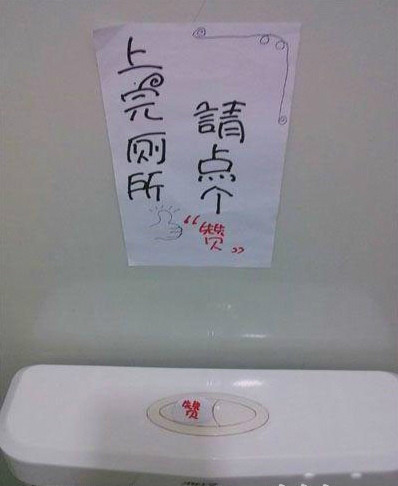 上完厕所
請点个
“赞”
赞